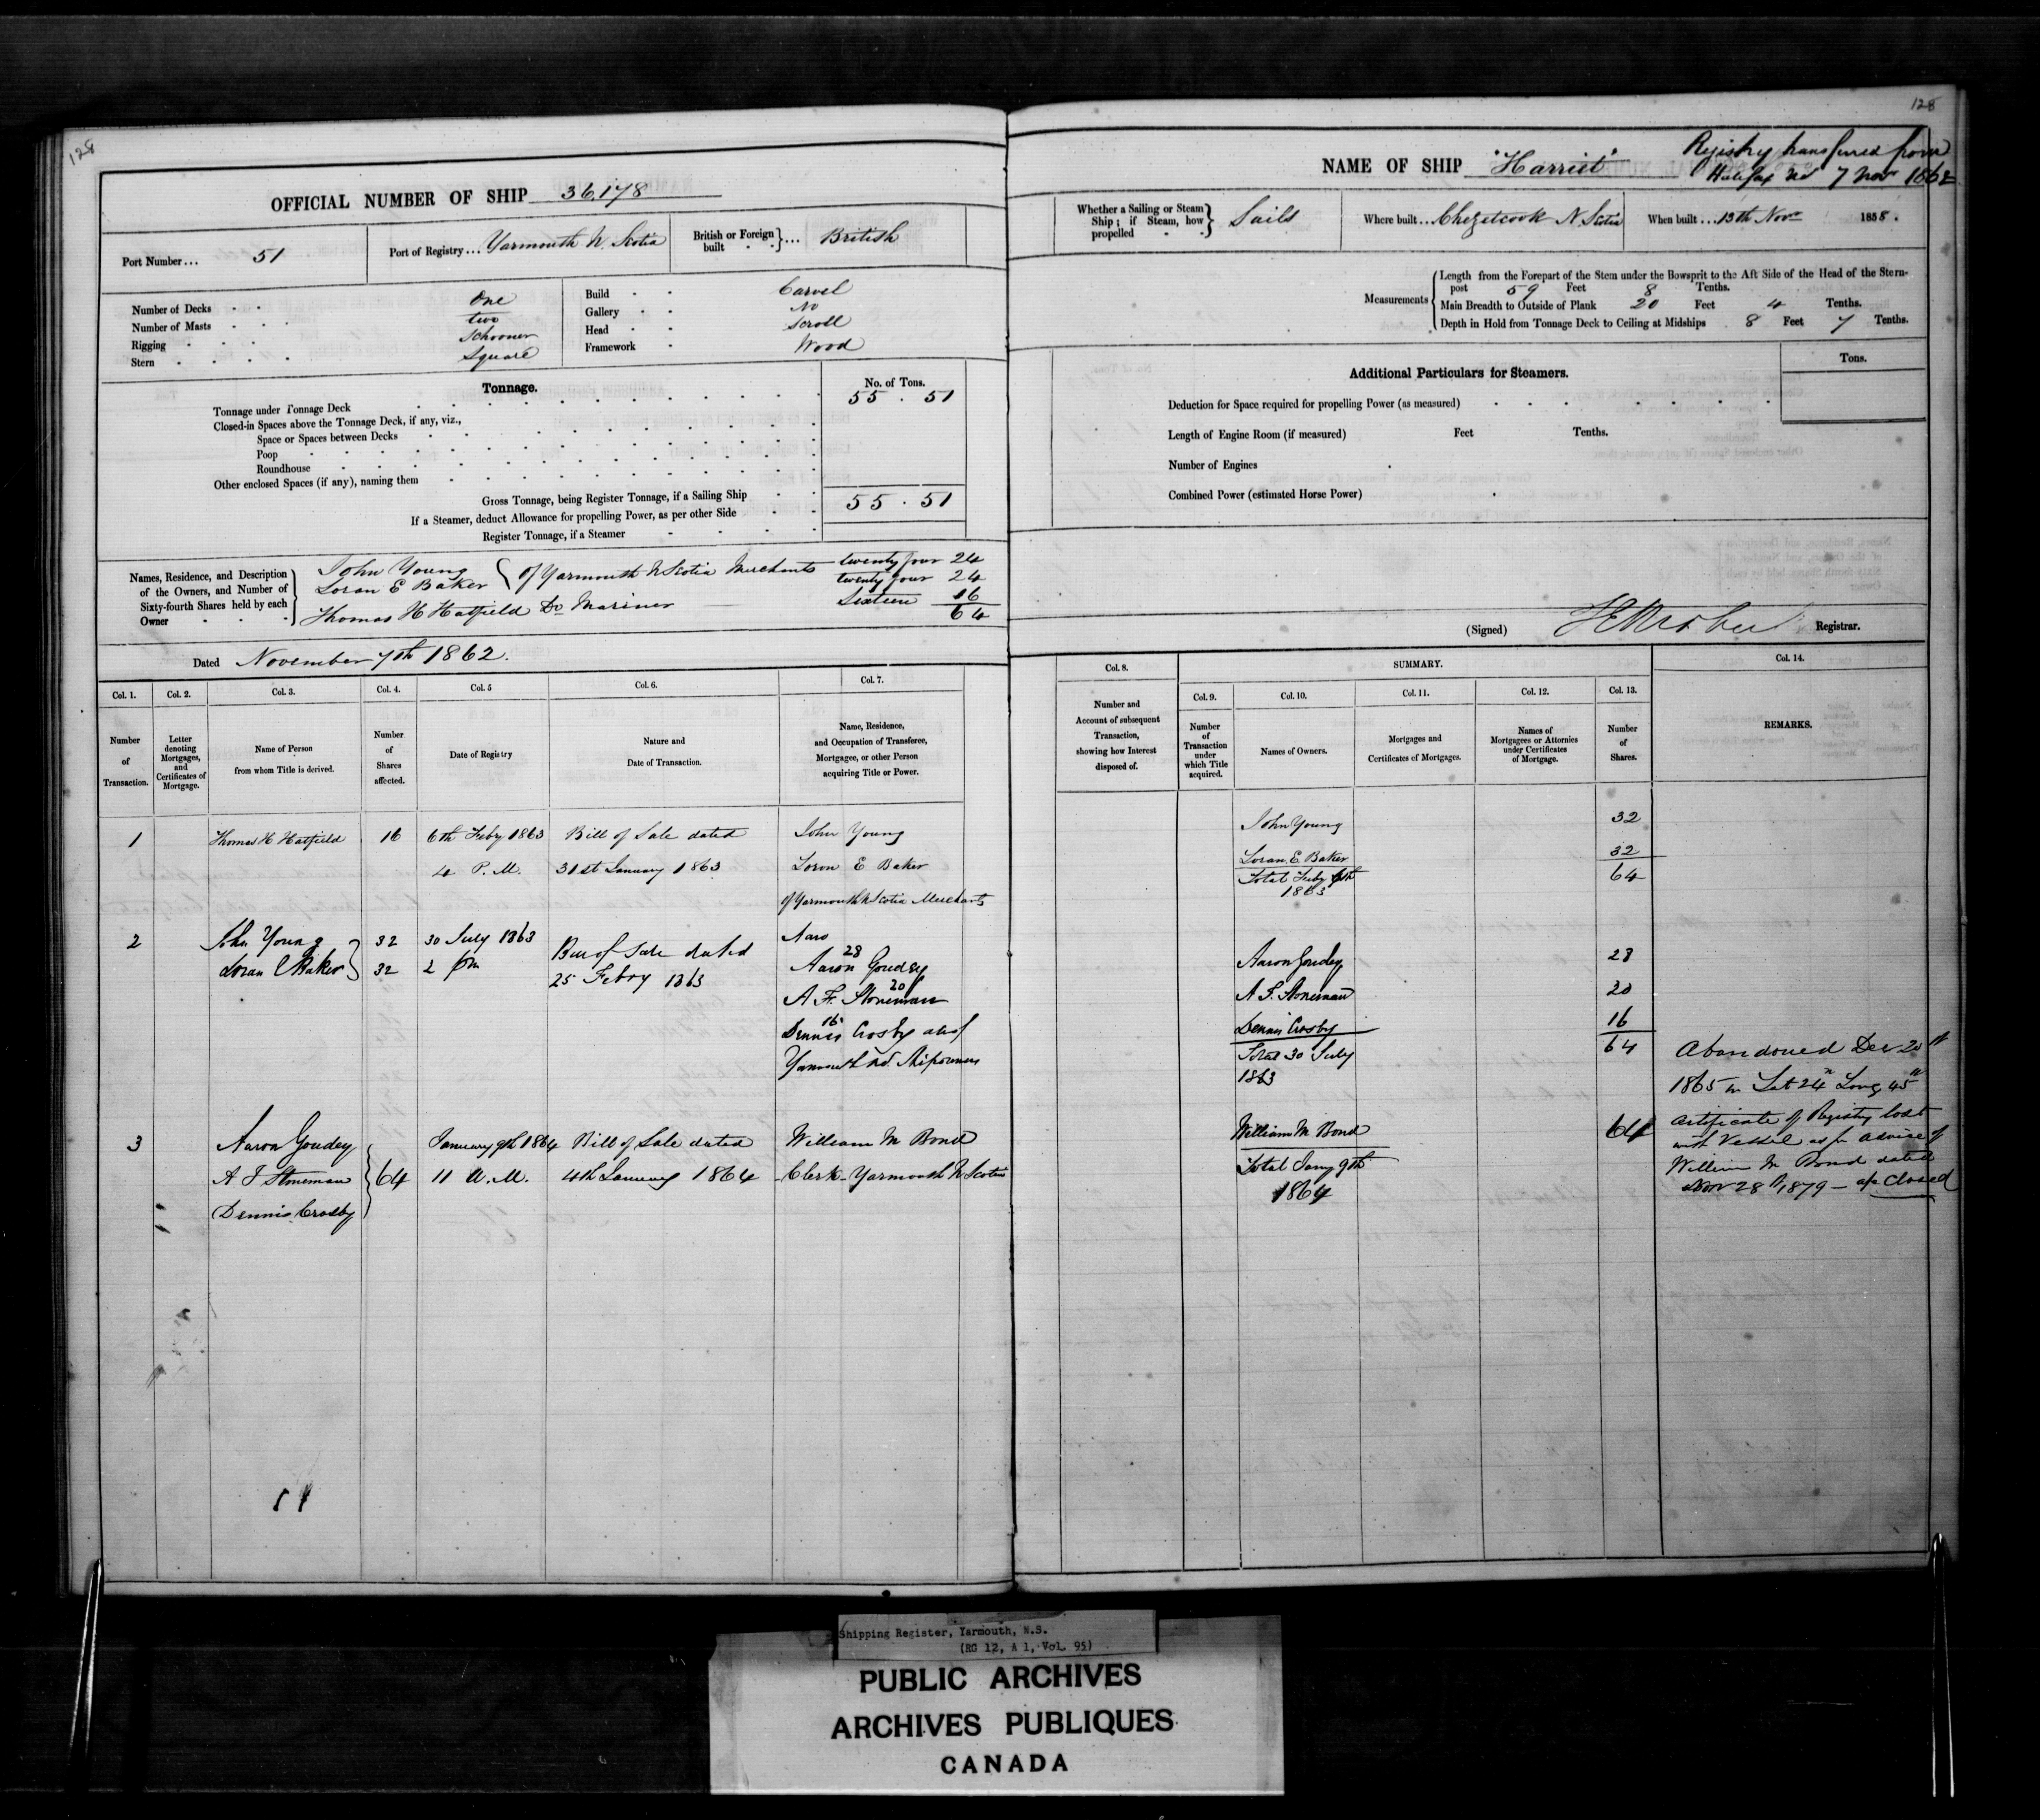 128
OFFICIAL NUMBER OF SHIP 36,178
Port Number ... 51
Port of Registry ... Yarmouth N. Scotia
British or Foreign built } ... British
Number of Decks One
Number of Masts two
Rigging Schooner
Stern Square
Build Carvel
Gallery No
Head Scroll
Framework Wood
Tonnage.
No. of Tons.
Tonnage under Tonnage Deck 55 . 51
Closed-in Spaces above the Tonnage Deck, if any, viz.,
Space or Spaces between Decks
Poop
Roundhouse
Other enclosed Spaces (if any), naming them
Gross Tonnage, being Register Tonnage, if a Sailing Ship 55 . 51
If a Steamer, deduct Allowance for propelling Power, as per other Side
Register Tonnage, if a Steamer
Names, Residence, and Description
of the Owners, and Number of
Sixty-fourth Shares held by each
Owner
John Young
Loran E Baker { of Yarmouth N Scotia Merchants
twenty four 24
twenty four 24
Thomas H Hatfield Do Mariner Sixteen 16
64
Dated November 7th 1862.
Col. 1. Col. 2. Col. 3. Col. 4. Col. 5 Col. 6. Col. 7.
Number of Transaction.
Letter denoting Mortgages, and Certificates of Mortgage.
Name of Person from whom Title is derived.
Number of Shares affected.
Date of Registry
Nature and Date of Transaction.
Name, Residence, and Occupation of Transferee, Mortgagee, or other Person acquiring Title or Power.
1 Thomas H Hatfield 16 6th Feby 1863 Bill of Sale dated John Young
4 P.M. 31st January 1863 Loron E Baker
of Yarmouth N Scotia Merchants
2 John Young 32 30 July 1863 Bill of Sale dated Aaro
Loran E Baker 32 2 pm 25 Febry 1863 28
Aaron Goudey
20
A. F. Stoneman
16
Dennis Crosby all of
Yarmouth NS. Shipowners
3 Aaron Goudey January 9th 1864 Bill of Sale dated William M Bond
A F Stoneman 64 11 A.M. 4th January 1864 Clerk - Yarmouth N Scotia
Dennis Crosby
128
NAME OF SHIP "Harriet"
Registry transferred from
Halifax NS 7 Novr 1862
Whether a Sailing or Steam
Ship; if Steam, how
propelled
Sails
Where built ... Chezetcook N. Scotia
When built ... 13th Novr 1858.
Measurements
Length from the Forepart of the Stem under the Bowsprit to the Aft Side of the Head of the Stern-
post 59 Feet 8 Tenths.
Main Breadth to Outside of Plank 20 Feet 4 Tenths.
Depth in Hold from Tonnage Deck to Ceiling at Midships 8 Feet 7 Tenths.
Tons.
Additional Particulars for Steamers.
Deduction for Space required for propelling Power (as measured)
Length of Engine Room (if measured) Feet Tenths.
Number of Engines
Combined Power (estimated Horse Power)
(Signed) Registrar.
Col. 8. SUMMARY. Col. 14.
Col. 9. Col. 10. Col. 11. Col. 12. Col. 13.
Number and Account of subsequent Transaction, showing how Interest disposed of.
Number of Transaction under which Title acquired.
Names of Owners.
Mortgages and Certificates of Mortgages.
Names of Mortgagees or Attornies under Certificates of Mortgage.
Number of Shares.
REMARKS.
John Young 32
Loran E. Baker 32
Total Feby 6th 64
1863
Aaron Goudey 28
A. F. Stoneman 20
Dennis Crosby 16
Total 30 July 64
1863
William M Bond 64
Total Jany 9th
1864
Abandoned Dec 20th
1865 in Lat 24 n Long 45 w
Certificate of Registry lost
with Vessel as pr advice of
William M Bond dated
Novr 28th 1879 - a/c Closed
Shipping Register, Yarmouth, N.S.
(RG 12, A 1, Vol. 95)
PUBLIC ARCHIVES
ARCHIVES PUBLIQUES
CANADA